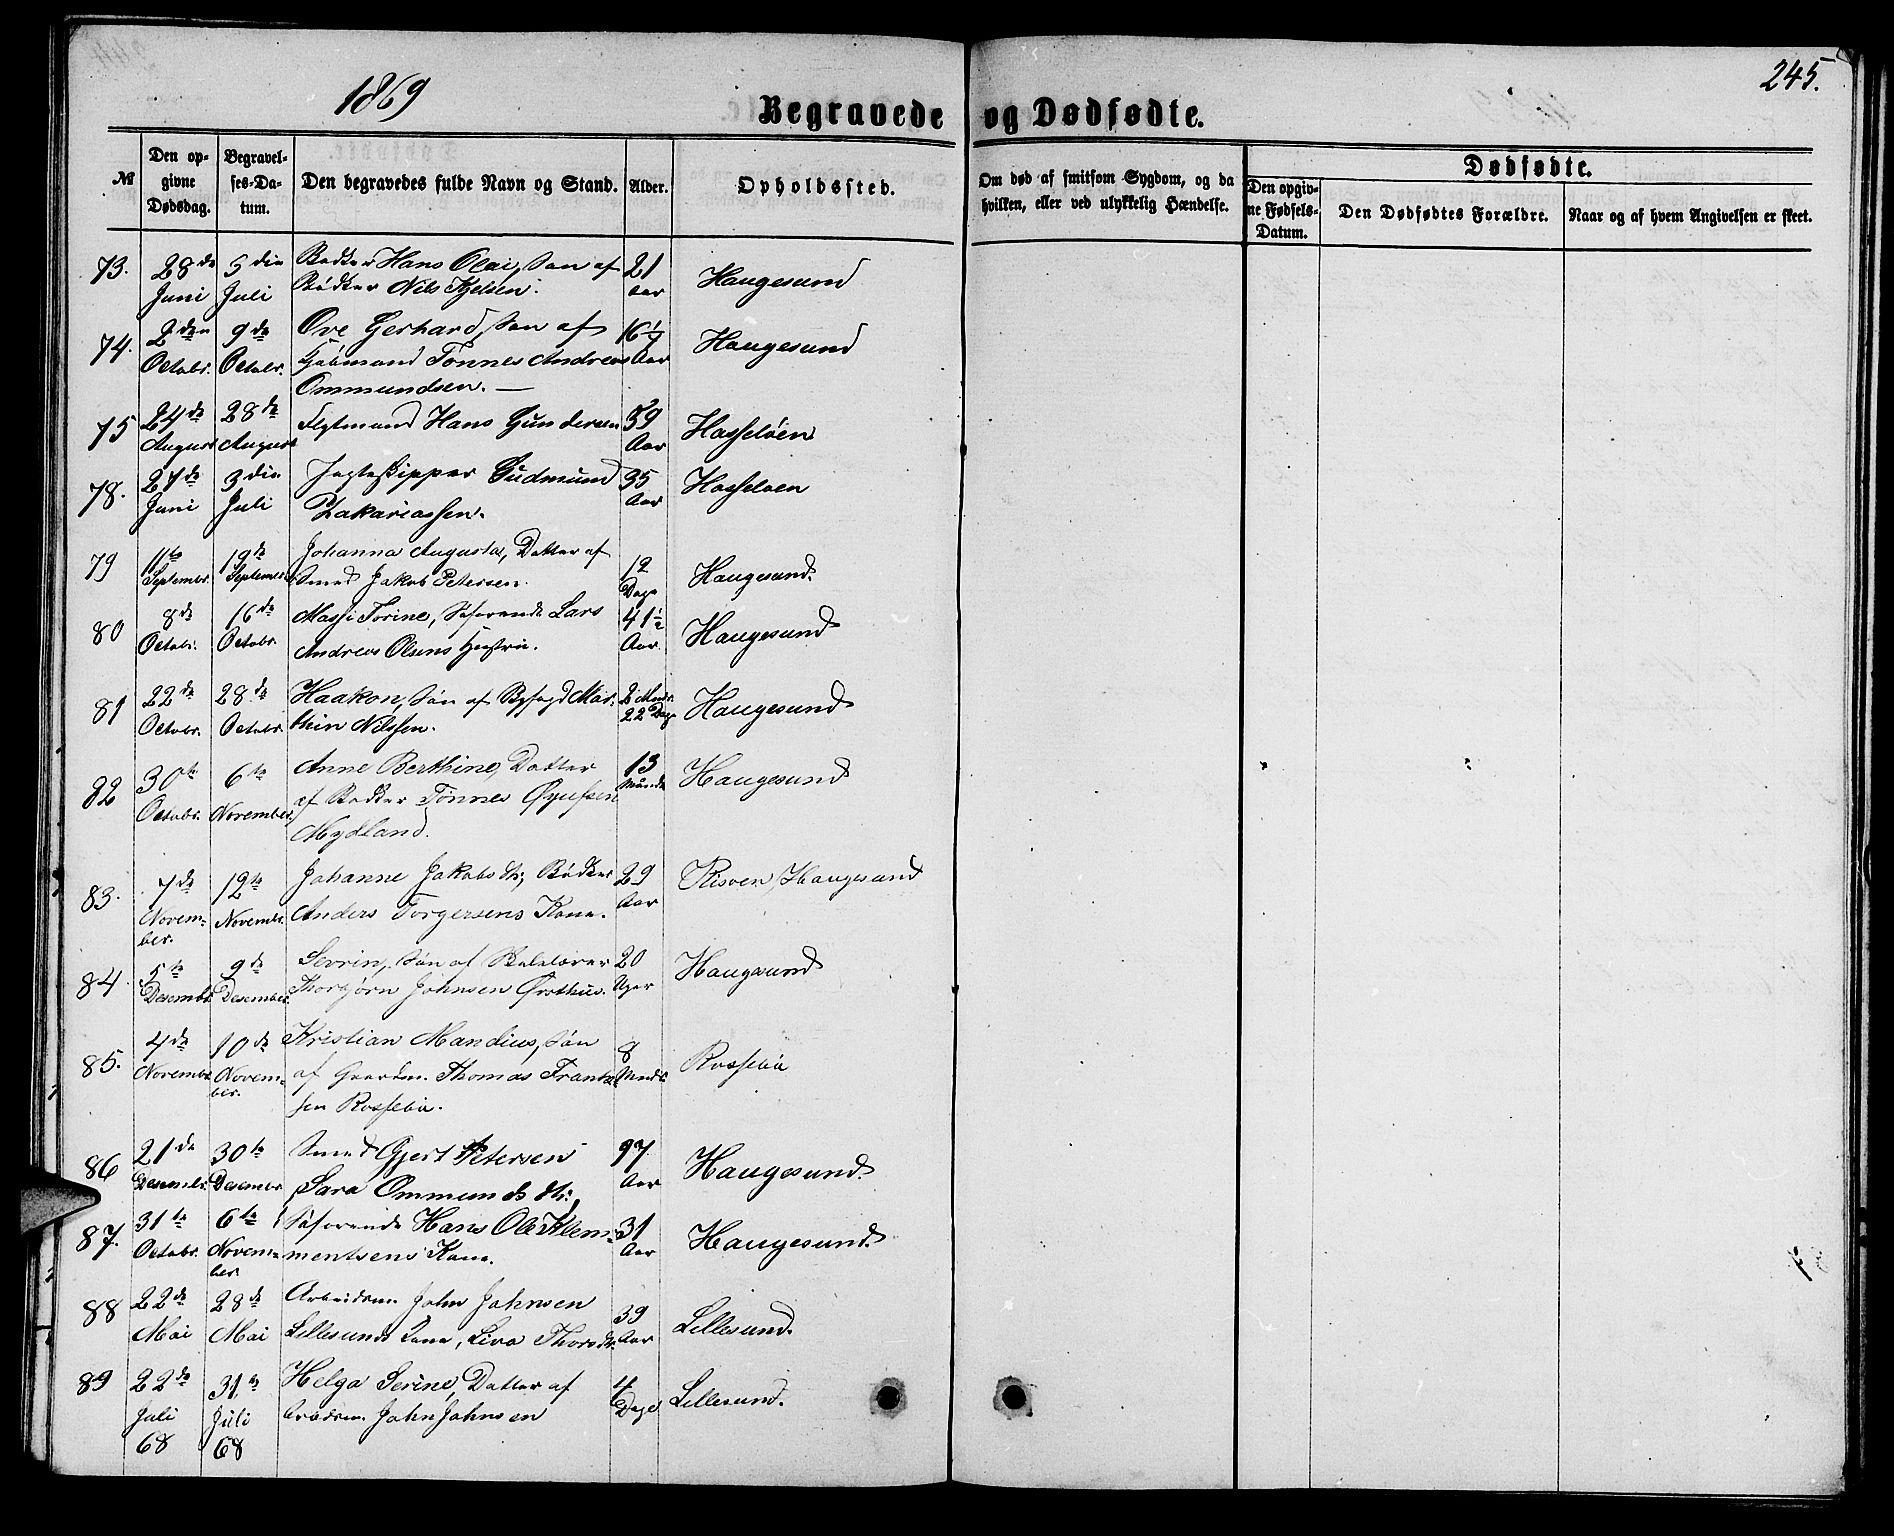 1869
245.
Begravede og Dødfødte.
№
Den opgivne Dødsdag.
Begravelses-Datum.
Den begravedes fulde Navn og Stand.
Alder.
Opholdssted.
Om død af smitsom Sygdom, og da hvilken, eller ved ulykkelig Hændelse.
Dødfødte.
Den opgivne Fødsels-Datum.
Den Dødfødtes Forældre.
Naar og af hvem Angivelsen er skeet.
73. 28de Juni 5die Juli Bødker Hans Olai, Søn af Bødker Nils Kjelsen. 21 Aar Haugesund
74. 2den Octobr. 9de Octobr. Ove Gerhard, Søn af Tønnes Andreas Ommundsen. — 16½ Aar Haugesund
75 24de August 28de August Hans Gundersen 59 Aar Hasseløen
78. 27de Juni 3die Juli Jagteskipper Gudmund Zakariassen. 35 Aar Hasseløen
79 11te Septembr. 19de Septembr. Johanna Augusta, Datter af Smed Jakob Petersen. 12 Dage Haugesund.
80 8de Octobr. 16de Octobr. Massi Torine, Søfarende Lars Andreas Olsens Hustru. 41½ Aar. Haugesund
81 22de Octobr. 28de Octobr. Haakon, Søn af Byfogd Marthin Nilssen. 2 Mndr. 22 Dage Haugesund
82 30te Octobr. 6te November. Anne Berthine, Datter af Bødker Tønnes Mydland. 13 Haugesund
83. 7de November. 12te Novembr. Johanne Jakobsdtr, Bødker Anders Torgersens Kone. 29 Aar Risøen, Haugesund
84. 5te Desembr. 9de Desember. Sevrin, Søn af Skolelærer Thorbjørn Johnsen 20 Uger Haugesund
85. 4de Novembr. 10de November. Kristian Mandius, Søn af Gaardm. Thomas Frantzsen Rossebø. 8 Rossebø
86 21de Desembr. 30te Desembr Smed Gjert Petersen 97 Aar Haugesund
87. 31te Octobr. 6te November Sara Ommundsdtr, Søfarende Hans Ole Klemmentsens Kone. 31 Aar Haugesund.
88 22de Mai 28de Mai Arbeidsm. John Johnsen Lillesunds Kone, Liva Thorsdtr. 39 Aar Lillesund.
89 22de Juli 68 31te Juli 68 Helga Serine, Datter af Arbdsm. John Johnsen 4 Dage Lillesund.